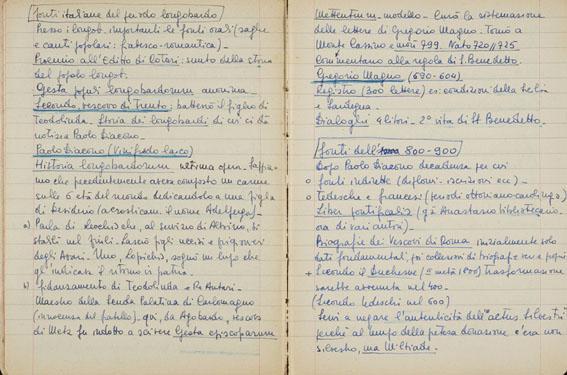 fonti italiane del periodo longobardo
Presso i longob. importanti le fonti orali (saghe
e canti popolari: fiabesco-romantica) -
Proemio all'Editto di Rotari: sunto della storia
del popolo longob.
Gesta populi longobardorum anonima -
Secondo, vescovo di Trento; battezzò il figlio di
Teodolinda. Storia dei longobardi di cui ci dà
notizia Paolo Diacono -
Paolo Diacono (Vinifrido laico)
Historia longobardorum ultima opera. Sappia-
mo che precedentemente aveva composto un carme
sulle 6 età del mondo dedicandolo a una figlia
di Desiderio (acrosticam. il nome Adelperga) -
a) Parla di Leochis che, al servizio di Alboino, si
stabilì nel friuli. Lasciò figli uccisi e prigionieri
degli Avari. Uno, Lopichis, sognò un lupo che
gli indicava il ritorno in patria.
b) fidanzamento di Teodolinda e Re Autari -
Maestro della Scuola Palatina di Carlomagno
(innocenza del fratello). qui, da Agobardo, vescovo
di Metz fu indotto a scrivere Gesta episcoparum
Mettentium - modello. Curò la sistemazione
delle lettere di Gregorio Magno. Tornò a
Monte Cassino e morì 799. Nato 720//725
Commentario alla regola di S. Benedetto.
Gregorio Magno (590-604)
Registro (800 lettere) es: condizioni della Sicilia
e Sardegna.
Dialoghi 4 libri - 2° vita di St Benedetto.
fonti dell' 800-900
Dopo Paolo Diacono decadenza per cui
o fonti indirette (diplomi - iscrizioni ecc) -
o tedesche e francesi (periodi ottoniano-carolingio)
Liber pontificalis (già Anastasio bibliotecario -
ora di vari autori) -
Biografie dei Vescovi di Roma inizialmente solo
dati fondamentali, poi collezioni di biografie vere e proprie
+ Secondo il Duchesne (2° metà 1800) trasformazione
sarebbe avvenuta nel 400 -
(Secondo tedeschi nel 600)
Servì a negare l'autenticità dell'"actus Silvestri"
perché al tempo della pretesa donazione c'era non
Silvestro, ma Milziade.